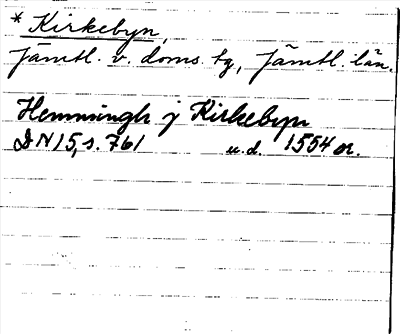 * Kirkebyn,
Jämtl. v. doms. tg, Jämtl. län.
Hemmingh j Kirkebyn
DN 15, s. 761 u.d. 1554 or.